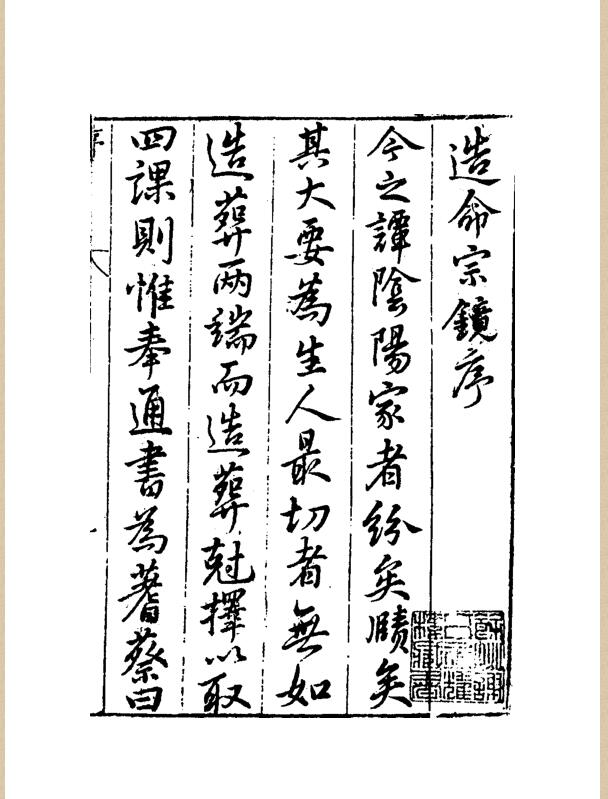 造命宗鏡序
今之譚陰陽家者紛矣賾矣
其大要為生人最切者無如
造葬兩端而造葬尅擇以取
四課則惟奉通書為蓍蔡曰